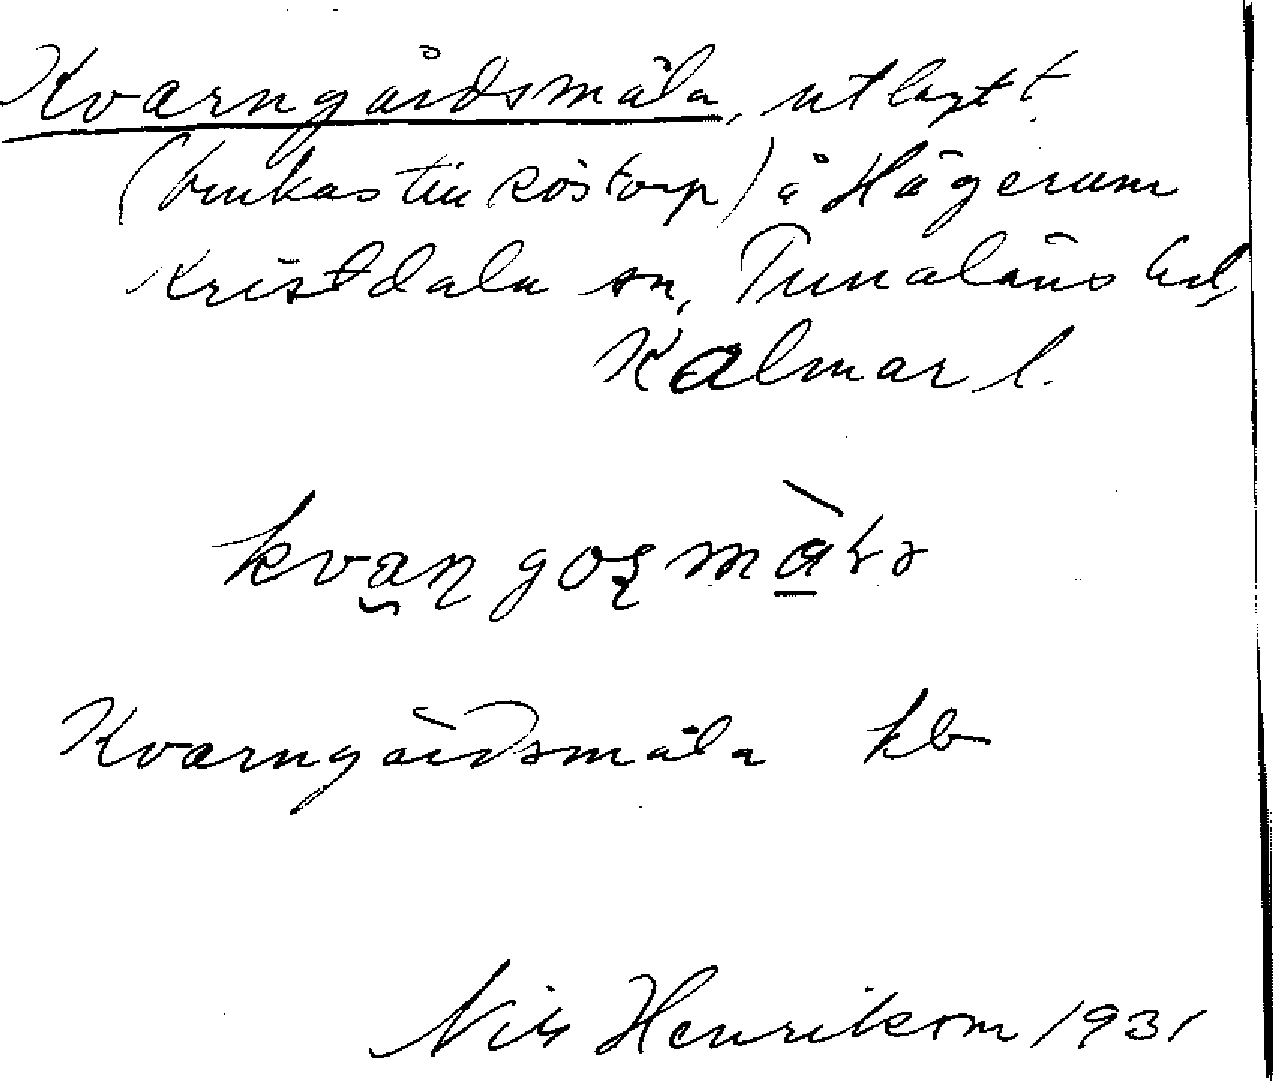 Kvarngårdsmåla, utlagt t.
(brukas till Röstorp) å Hägerum
Kristdala sn, Tunaläns hd,
Kalmar l.
Kvarngårdsmåla kb
Nils Henrikson 1931